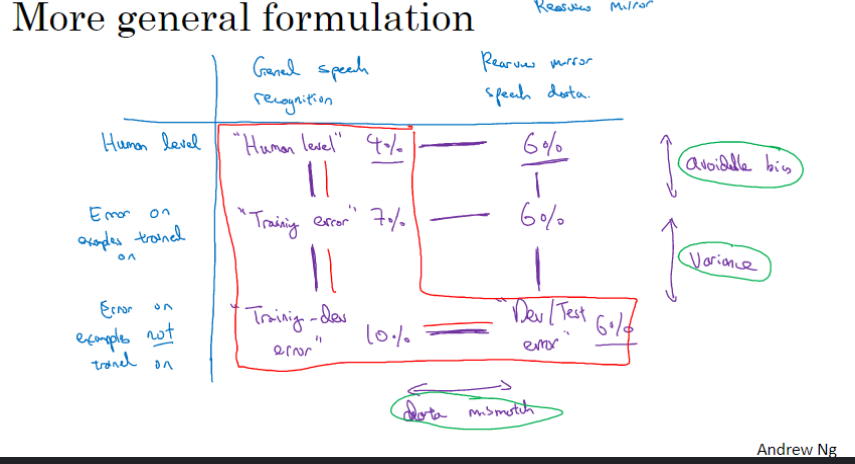 More general formulation
Rearview Mirror
General speech
recognition
Rearview mirror
speech data.
Human level
"Human level" 4%
6%
avoidable bias
Error on
examples trained
on
"Training error" 7%
6%
Variance
Error on
examples not
trained on
"Training-dev
error" 10%
"Dev/Test
error" 6%
data mismatch
Andrew Ng